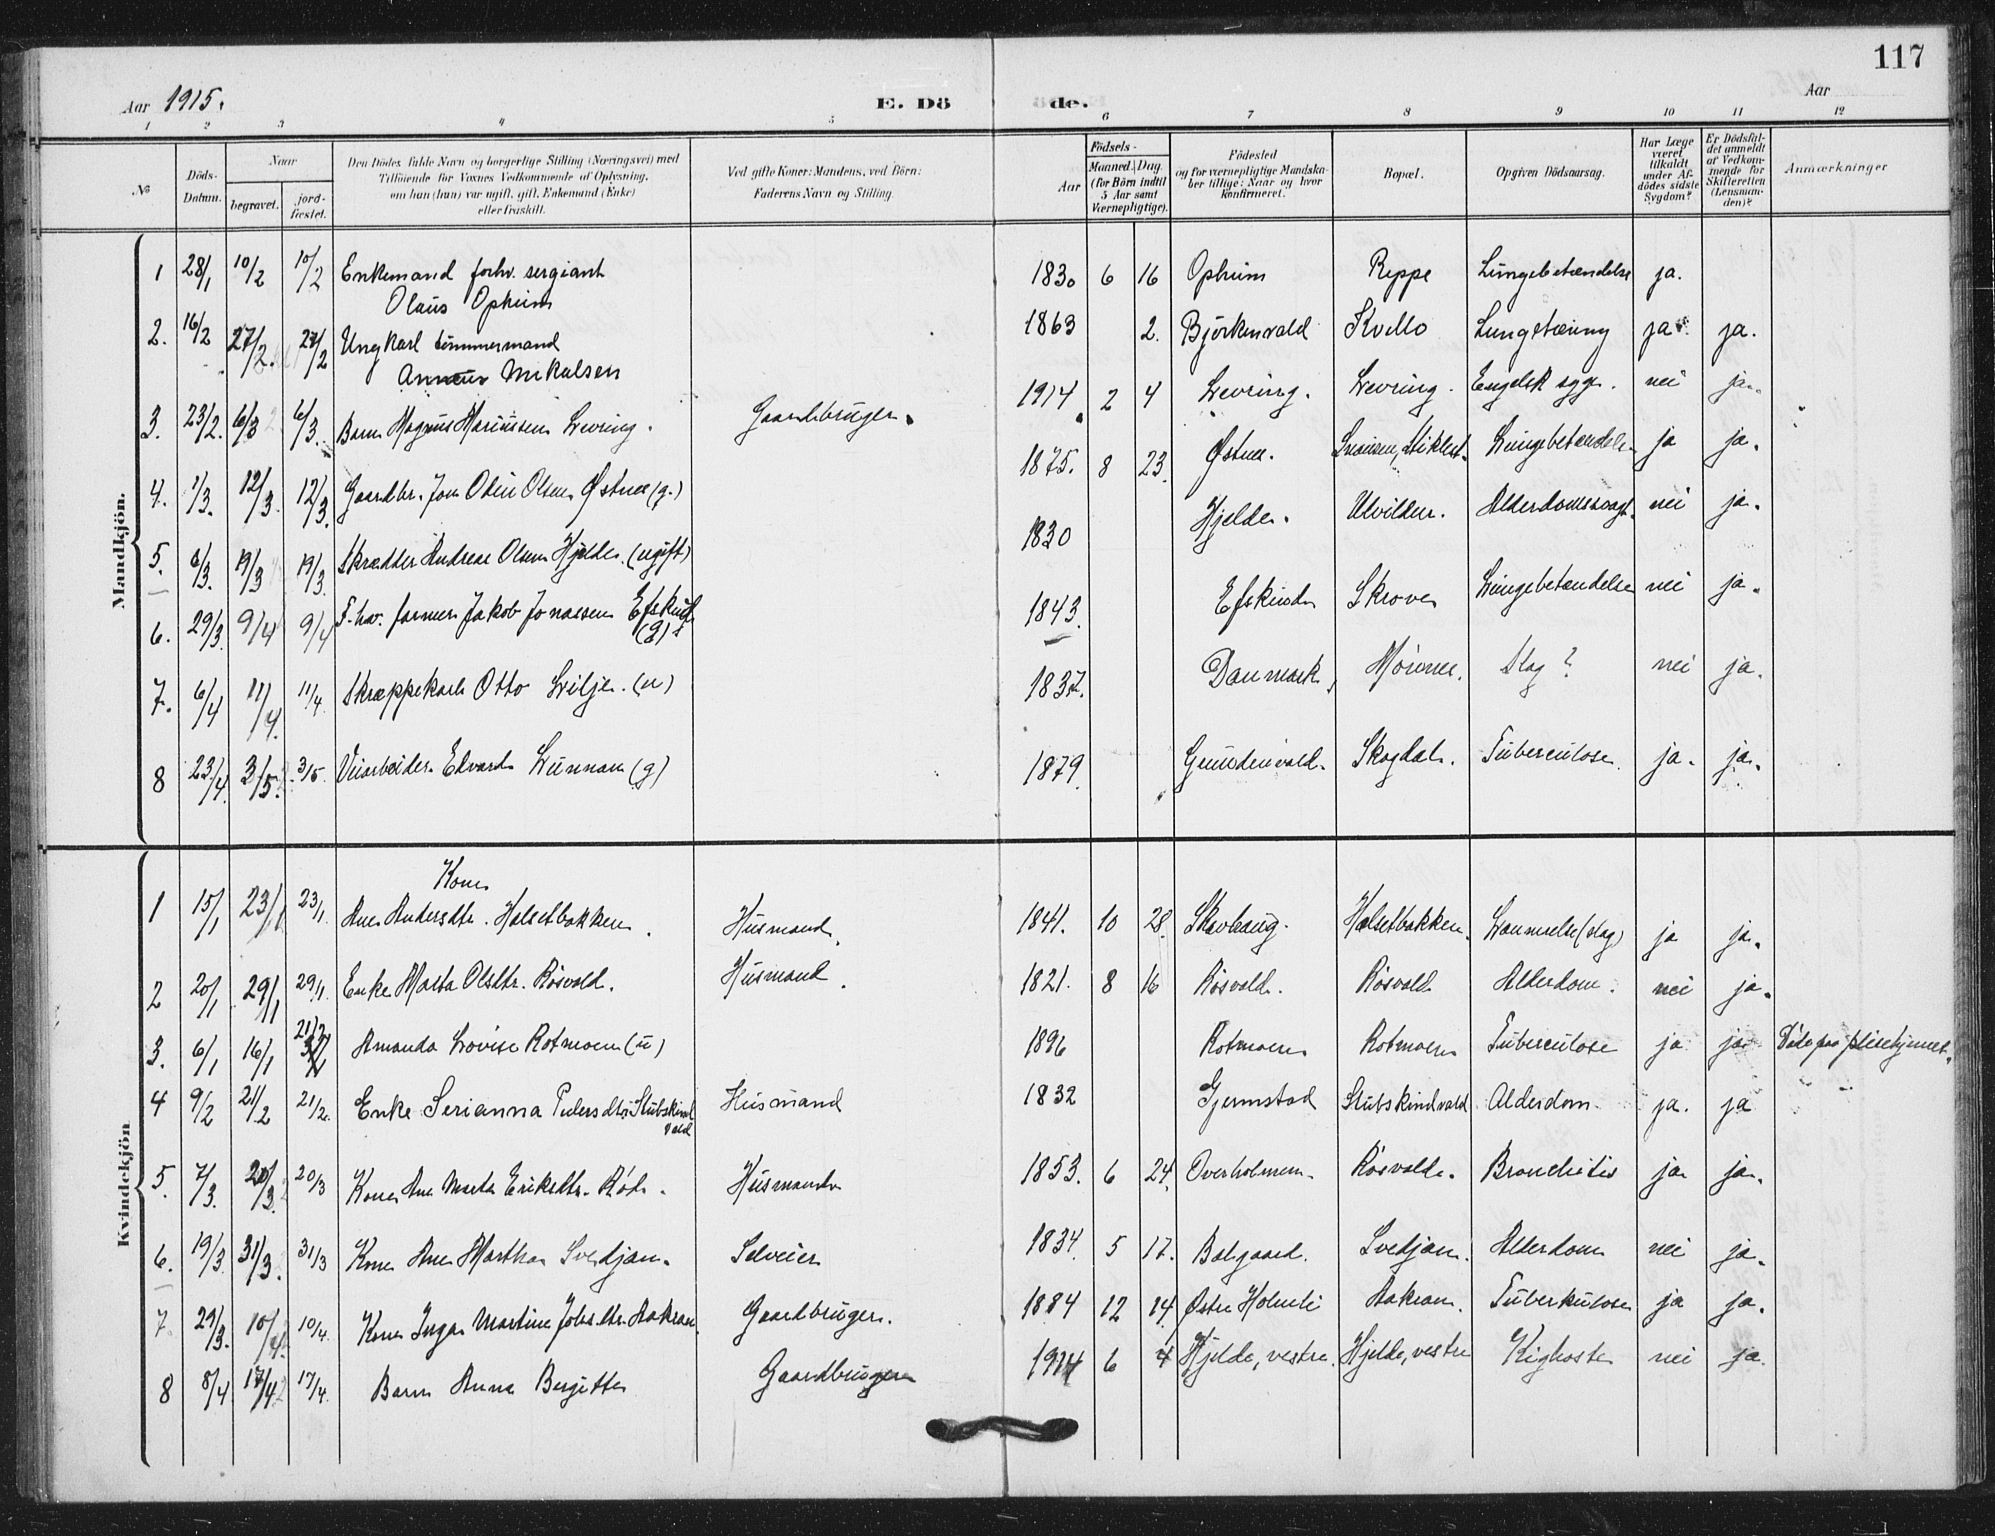 117
Aar 1915.
E. Dö de.
Aar
1 2 3 4 5 6 7 8 9 10 11 12
№
Döds-Datum.
Naar
begravet.
jord-fæstet.
Den Dödes fulde Navn og borgerlige Stilling (Næringsvei) med
Tilföiende for Voxnes Vedkommende af Oplysning,
om han (hun) var ugift, gift, Enkemand (Enke)
eller fraskilt.
Ved gifte Koner: Mandens, ved Börn:
Faderens Navn og Stilling.
Födsels-
Aar
Maaned. Dag
(for Börn indtil
5 Aar samt
Værnepligtige).
Födested
og for værnepligtige Mandska-
ber tillige: Naar og hvor
konfirmeret.
Bopæl.
Opgiven Dödsaarsag.
Har Læge
været
tilkaldt
under Af-
dödes sidste
Sygdom?
Er Dödsfal-
det anmeldt
af Vedkom-
mende for
Skifteretten
(Lensman-
den)?
Anmærkninger
Mandkjön.
1 28/1 10/2 10/2 Enkemand forhv. sergiant 1830 6 16 Opheim Reppe Lungebetændelse ja.
Olaus Opheim
2. 16/2 27/2. 27/2 Ungkarl tömmermand 1863 2. Björkenvald Kvello Lungetæring ja. ja.
Mikalsen
3. 23/2. 6/3 6/3. Barn Magnus Mariussen Levring. Gaardbruger. 1914 2 4 Levring. Levring. Engelsk syge. nei ja.
4. 1/3. 12/3. 12/3. Gaardbr. Jon Odin Olsen Østnee (g.) 1875. 8 23. Østnee. Lungebetændelse ja ja.
5. 6/3. 19/3 19/3. Skrædder Andreas Olsen Hjelde. (ugift) 1830 Hjelde. Ulvilden. nei ja.
6. 29/3. 9/4 9/4 F. hv. farmer Jakob Jonassen Efskind 1843. Efskind Skrove Lungebetændelse nei ja.
(g)
7. 6/4 11/4. 11/4. Skræppekarl Otto Lilje. (u) 1837. Danmark, Slag? nei ja.
8 23/4. 3/5. 3/5. Veiarbeider Edvard Lunnan (g) 1879. Skogdal. Tuberculose. ja. ja.
Kvindekjön
Kone
1 15/1 23/1 23/1. Ane Andersdtr. Halsetbakken. Husmand. 1841. 10 28. Skavhaug. Halsetbakken. Lammelse (slag) ja ja.
2 20/1 29/1 29/1. Enke Marta Olsdtr. Rösvald. Husmand. 1821. 8 16 Rösvald. Rösvald Alderdom. nei ja.
3. 6/1 16/1 21/2 Amanda Lovise Rotmoen (u) 1896 Rotmoen Rotmoen Tuberculose ja ja. Döde paa pleiehjemmet.
4 9/2 21/2 21/2. Enke Serianna Pedersdtr. Stubskind Husmand 1832 Gjermstad Stubskindvald Alderdom. ja. ja
vald
5. 7/3. 20/3. 20/3 Kone Ane Marta Eriksdtr. Röd. Husmand 1853. 6 24. Overholmen. Rösvald. Bronchitis ja ja.
6. 19/3. 31/3. 31/3 Kone Ane Martha Svedjan. Selveier 1834. 5 17. Balgaard. Svedjan. Alderdom nei ja.
7. 29/3. 10/4. 10/4. Kone Inga Martine Johs.dtr. Aakran. Gaardbruger. 1884 12 14. Østre Holmli Aakran. Tuberkulose ja ja.
8 8/4 17/4 17/4. Barn Anna Bergitte Gaardbruger 1914 6 4 Hjelde, vestre. Hjelde, vestre Kighoste nei ja.